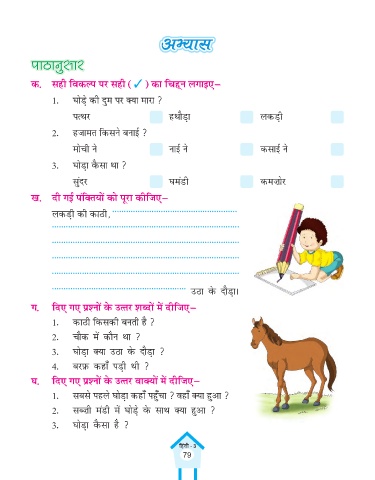 अभ्यास
पाठानुसार
क. सही विकल्प पर सही (✓) का चिह्न लगाइए–
1. घोड़े की दुम पर क्या मारा ?
पत्थर हथौड़ा लकड़ी
2. हजामत किसने बनाई ?
मोची ने नाई ने कसाई ने
3. घोड़ा कैसा था ?
सुंदर घमंडी कमज़ोर
ख. दी गई पंक्तियों को पूरा कीजिए–
लकड़ी की काठी,
उठा के दौड़ा।
ग. दिए गए प्रश्नों के उत्तर शब्दों में दीजिए–
1. काठी किसकी बनती है ?
2. चौक में कौन था ?
3. घोड़ा क्या उठा के दौड़ा ?
4. बरफ़ कहाँ पड़ी थी ?
घ. दिए गए प्रश्नों के उत्तर वाक्यों में दीजिए–
1. सबसे पहले घोड़ा कहाँ पहुँचा ? वहाँ क्या हुआ ?
2. सब्ज़ी मंडी में घोड़े के साथ क्या हुआ ?
3. घोड़ा कैसा है ?
हिंदी - 3
79